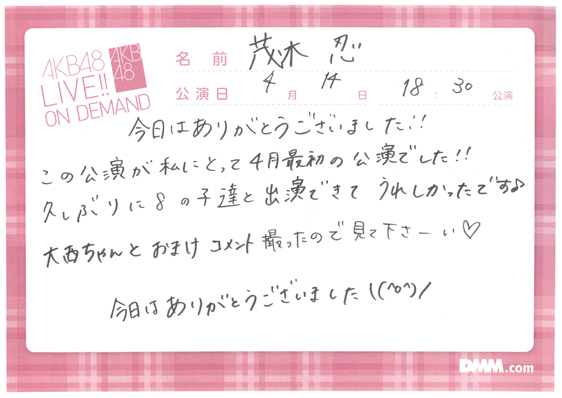 AKB48
LIVE!!
ON DEMAND
AKB
48
名前 茂木 忍
公演日 4月 14日 18:30 公演
今日はありがとうございました!!
この公演が私にとって4月最初の公演でした!!
久しぶりに8の子達と出演できて うれしかったです♪
大西ちゃんと おまけ コメント 撮ったので 見て下さーい♡
今日はありがとうございました\(^o^)/
DMM.com